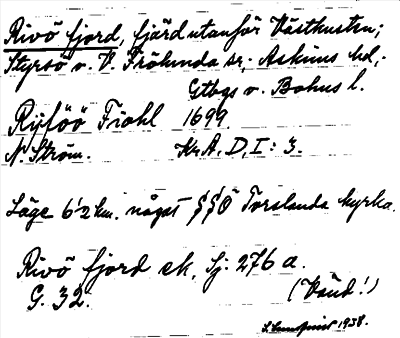 Rivö fjord, fjärd utanför Västkusten;
Styrsö o. V. Frölunda sr, Askims hd,
Gtbgs o. Bohus l.
Ryföö Fiohl 1699
N. Ström. Kr.A, D, I: 3.
Läge 6½ km. något SSÖ Torslanda kyrka.
Rivö fjord ek. Sj: 276 a.
G. 32. (Vänd!)
1938.